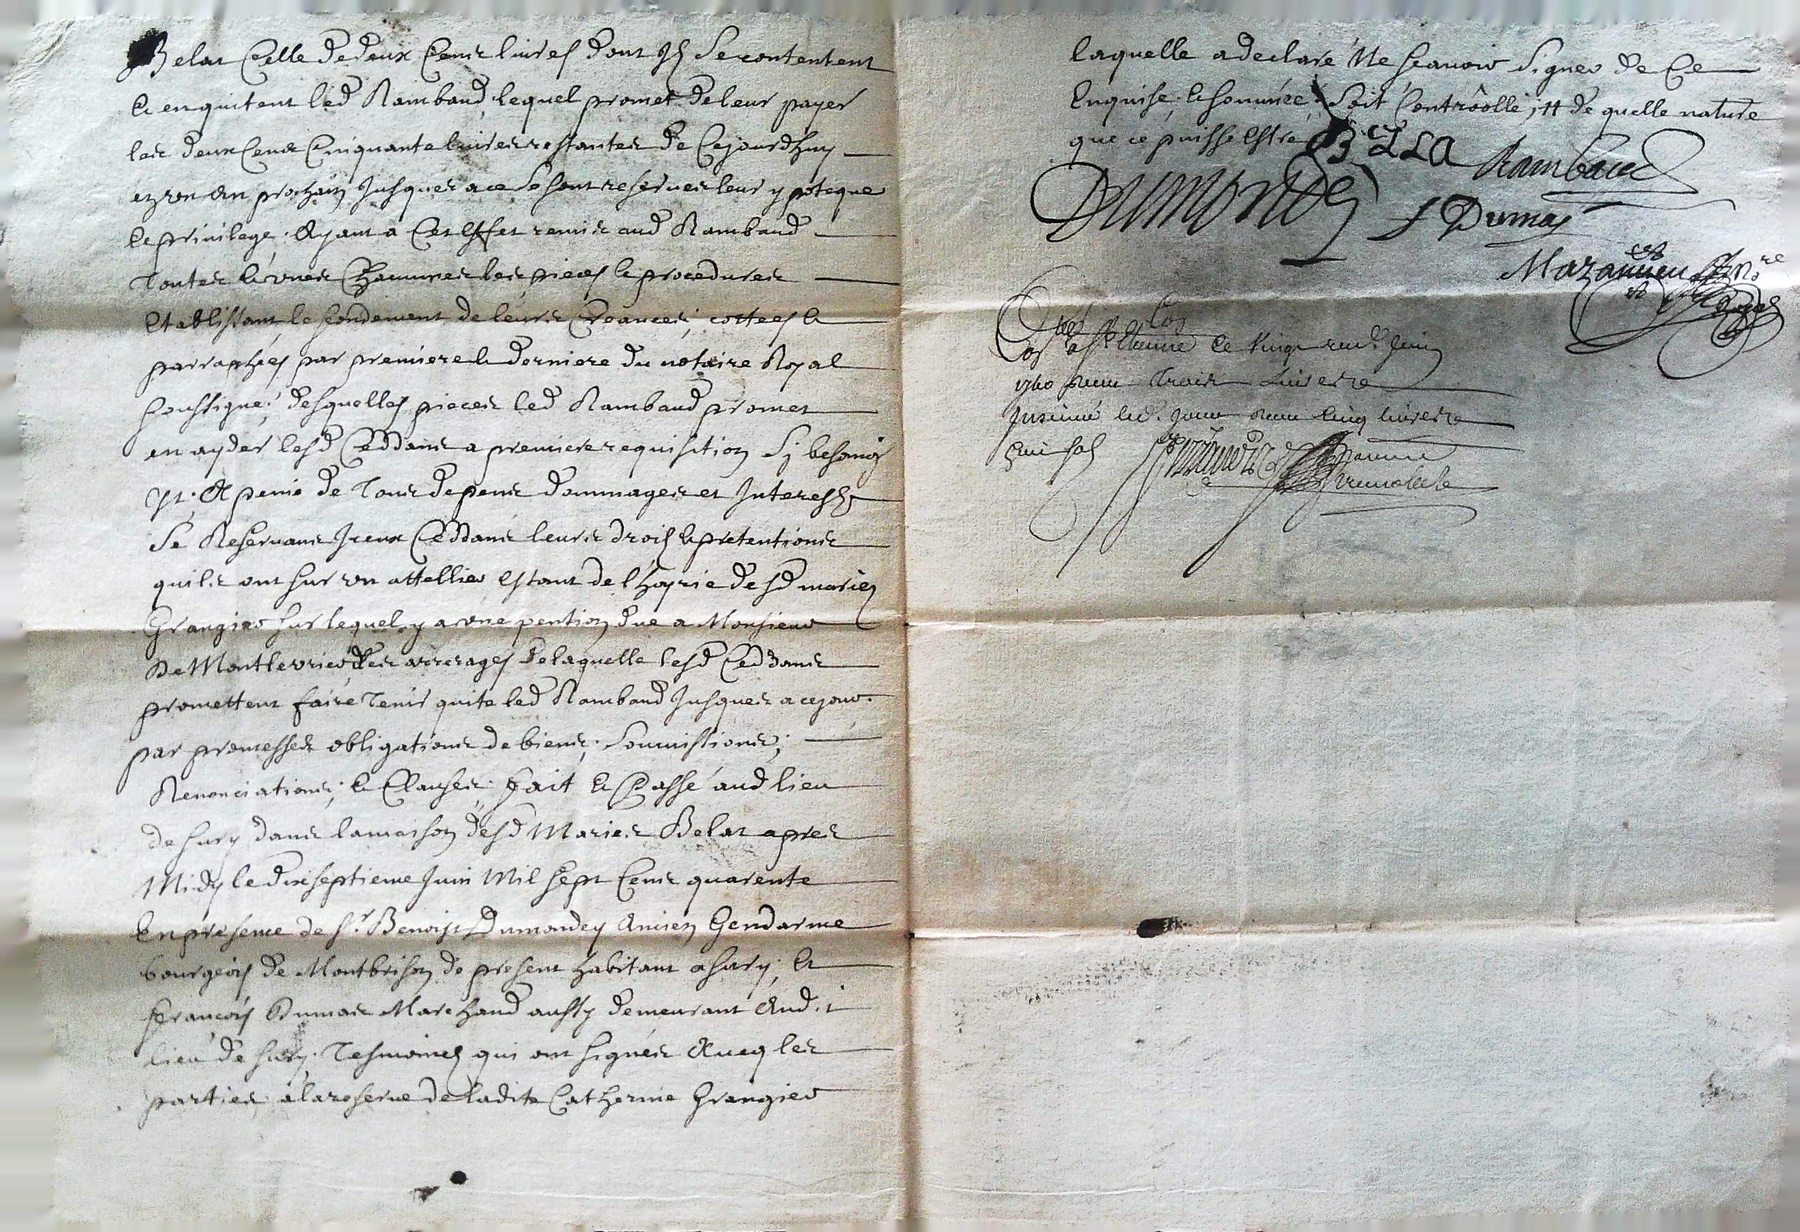 Belat Celle de deux Cents livres dont Ils Se contentent
Et en quitent led Rambaud, lequel promet de leur payer
les deux Cents Cinquante livres restantes de Cejourdhuy
en un an prochain Jusques a ce Se sont reservés leur ypoteque
Et privilege. Ayant a Cet Effet remis aud Rambaud
Toutes les pieces Et procedures
Etablissant le fondement de leurs Creances, cottées Et
parraphées par premiere Et derniere du notaire Royal
Soussigné, desquelles pieces led Rambaud promet
en ayder lesd Ceddans a premiere requisition Sy besoing
Est. A peine de Tous depens dommages et Interests
Se Reservans Iceux Ceddans leurs droits Et pretentions
quils ont sur un attellier Estant de l'hoyrie desd mariés
Grangier sur lequel y a une pention due a Monsieur
De Montlevrier des arrerages de laquelle lesd Ceddans
promettent faire Tenir quite led Rambaud Jusques a ce jour.
par promesses obligations de biens, Soumissions,
Renonciations, Et Clauses. fait Et Passé aud lieu
de Sury dans la maison desd Mariés Belat apres
Midy le dixseptieme Juin Mil Sept Cents quarente
En presence de Sr. Benoist Dumondey Ancien Gendarme
bourgeois de Montbrison de present habitant a Sury, Et
François Dumas Marchand aussy demeurant Audit
lieu de Sury. Tesmoins qui ont signés Avec les
parties, a la reserve de ladite Catherine Grangier
laquelle a declaré Ne Scavoir Signer de Ce
Enquise, Et sommée, Soit Controollé, Et de quelle nature
que ce puisse Estre
Rambaud
Dumondey f Dumas
Mazanieu Nre
a St Etienne Ce Vingt Juin
1740 Trois livres
Insinué led. Jour cinq livres